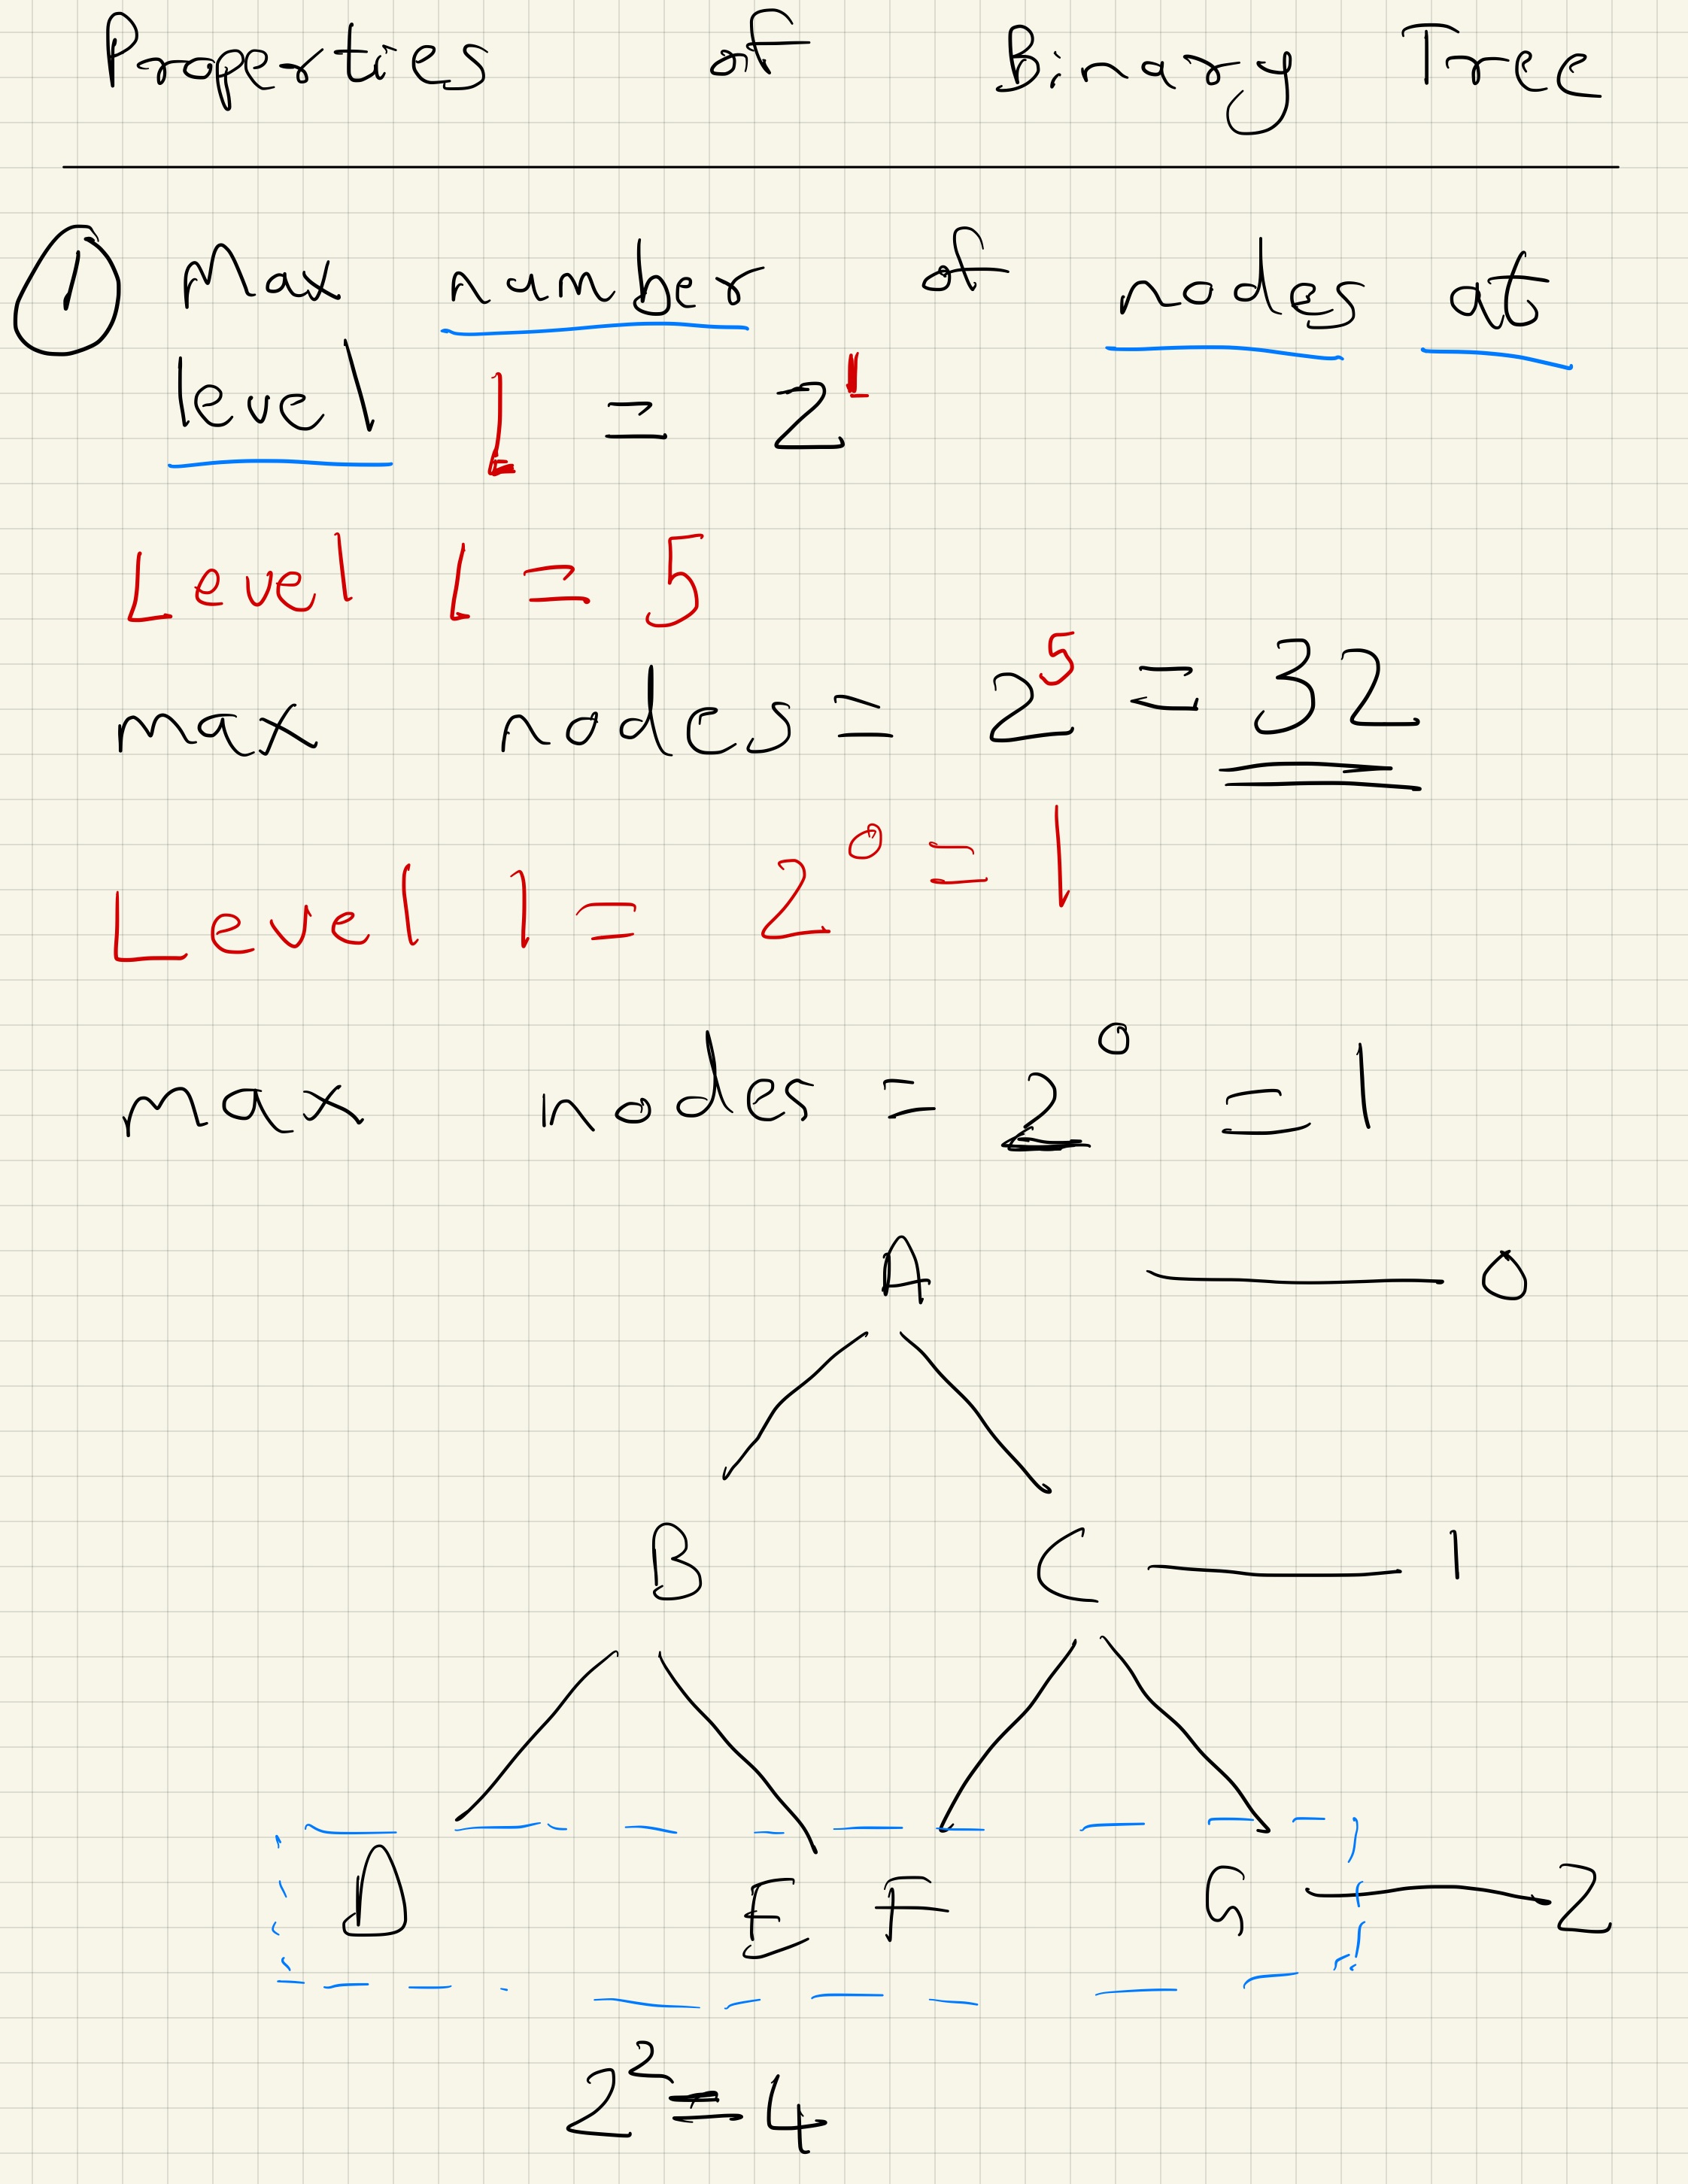 Properties of Binary Tree
① Max number of nodes at
level L = 2^L
Level L = 5
max nodes = 2^5 = 32
Level 1 = 2^0 = 1
max nodes = 2^0 = 1
A 0
B C 1
D E F G 2
2^2 = 4